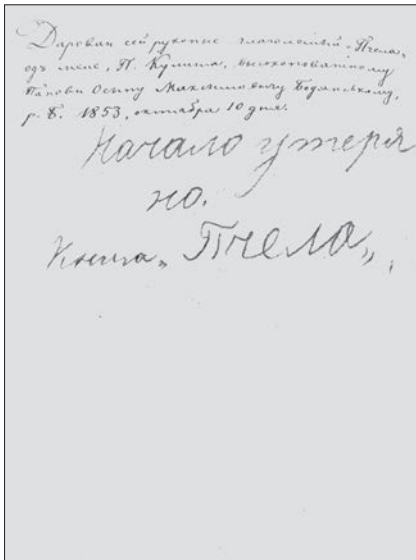 Дарован сей рукопис глаголемый „Пчела„
одъ мене, П. Кулиша, высокоповажному
Панови Осипу Максимовичу Бодянському,
р. Б. 1853, октабра 10 дня.
Начало утеря
но.
Книга „Пчела„